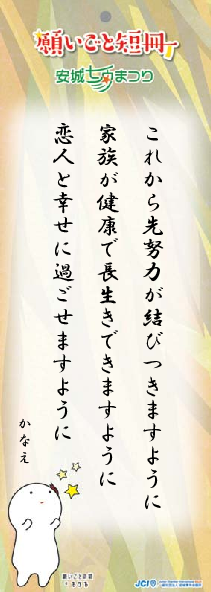 願いごと短冊
安城七夕まつり
これから先努力が結びつきますように
家族が健康で長生きできますように
恋人と幸せに過ごせますように
かなえ
願いごと短冊
JCI